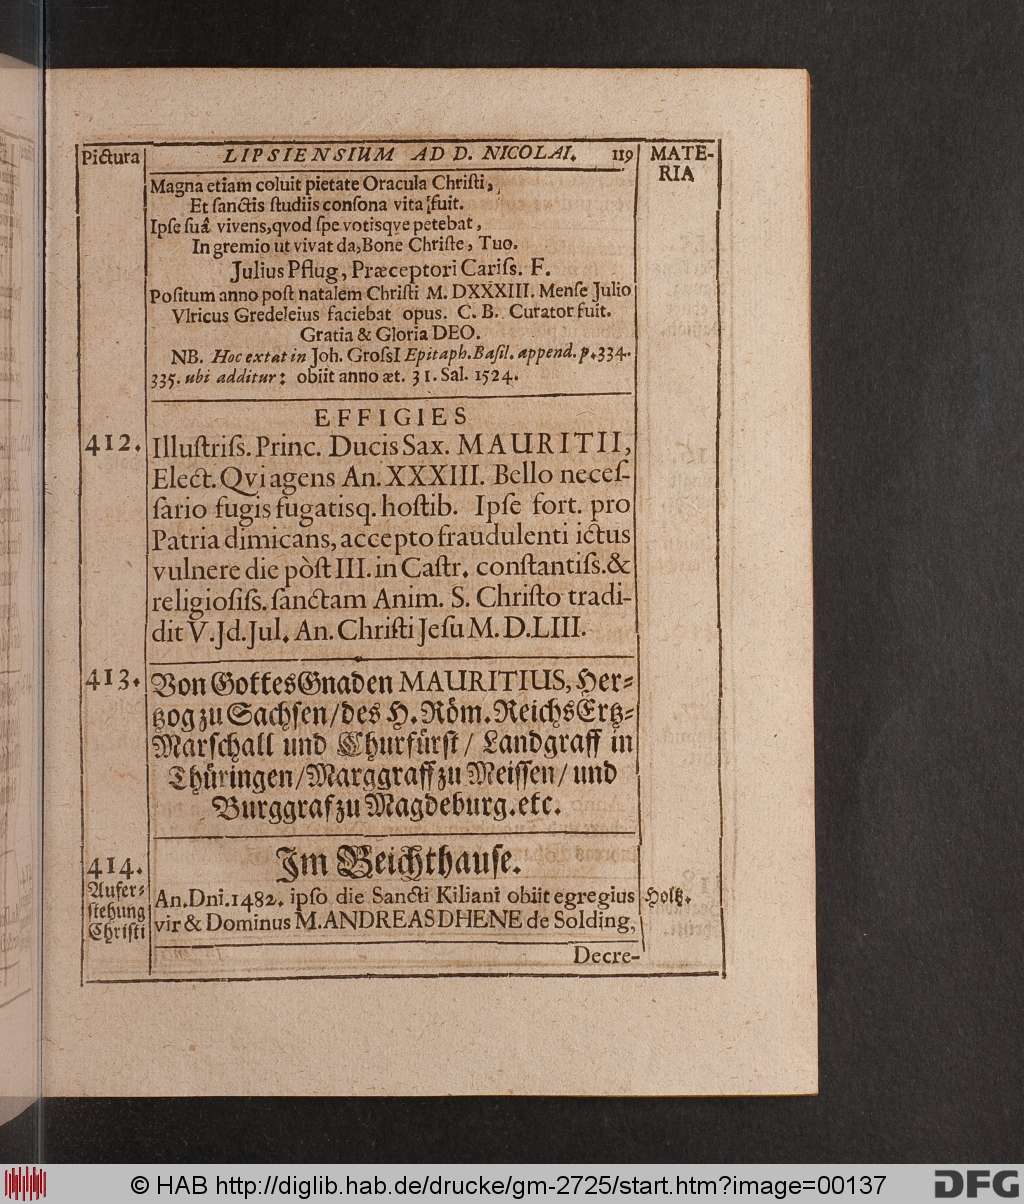 Pictura LIPSIENSIUM AD D. NICOLAI. 119 MATE-
RIA
Magna etiam coluit pietate Oracula Chriſti,
Et ſanctis ſtudiis conſona vita fuit.
Ipſe ſuâ vivens, qvod ſpe votisqve petebat,
In gremio ut vivat da, Bone Chriſte, Tuo.
Julius Pflug, Præceptori Cariſs. F.
Poſitum anno poſt natalem Chriſti M. DXXXIII. Menſe Julio
Vlricus Gredeleius faciebat opus. C. B. Curator fuit.
Gratia & Gloria DEO.
NB. Hoc extat in Joh. GroſsI Epitaph. Baſil. append. p. 334.
335. ubi additur: obiit anno æt. 31. Sal. 1524.
EFFIGIES
412. Illuſtriſs. Princ. Ducis Sax. MAURITII,
Elect. Qvi agens An. XXXIII. Bello neceſ-
ſario fugis fugatisq. hoſtib. Ipſe fort. pro
Patria dimicans, accepto fraudulenti ictus
vulnere die pòſt III. in Caſtr. conſtantiſs. &
religioſiſs. ſanctam Anim. S. Chriſto tradi-
dit V. Jd. Jul. An. Chriſti Jeſu M. D. LIII.
413. Von Gottes Gnaden MAURITIUS, Her-
tzog zu Sachſen/ des H. Röm. Reichs Ertz-
Marſchall und Churfürſt/ Landgraff in
Thüringen/ Marggraff zu Meiſſen/ und
Burggraf zu Magdeburg. etc.
414. Im Beichthauſe.
Aufer-
ſtehung
Chriſti
An. Dni. 1482. ipſo die Sancti Kiliani obiit egregius Holtz.
vir & Dominus M. ANDREAS DHENE de Solding,
Decre-
© HAB http://diglib.hab.de/drucke/gm-2725/start.htm?image=00137 DFG